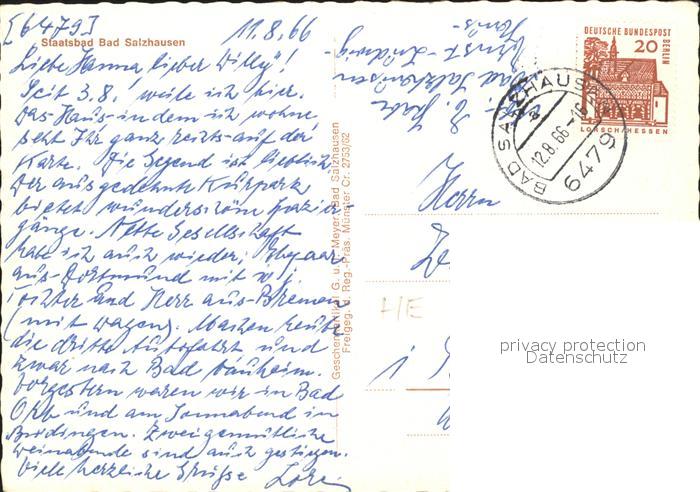 [6479]
11.8.66
Staatsbad Bad Salzhausen
Liebe Hanna, lieber Willy!
Seit 3.8. weile ich hier.
Das Haus in dem ich wohne
seht Ihr ganz rechts auf der
Karte. Die Gegend ist lieblich
Der ausgedehnte Kurpark
bietet wunderschöne Spazier-
gänge. Nette Gesellschaft
habe ich auch wieder; Ehepaar
aus Dortmund mit
Tochter und Herr aus Bremen
(mit Wagen). Machen heute
die dritte Autofahrt und
zwar nach Bad Nauheim.
Vorgestern waren wir in Bad
Orb und am Sonnabend in
Büdingen. Zwei gemütliche
Weinabende sind auch gestiegen.
Viele herzliche Grüße
Geschenkartikel G. u. Meyer, Bad Salzhausen
Freigeg. d. Reg.-Präs. Münster Cr. 2733/62
Bad Salzhausen
Ernst-Ludwig-
DEUTSCHE BUNDESPOST
BERLIN
20
LORSCH/HESSEN
BAD SALZHAUSEN
12.8.66
6479
Herrn
H/E
privacy protection
Datenschutz